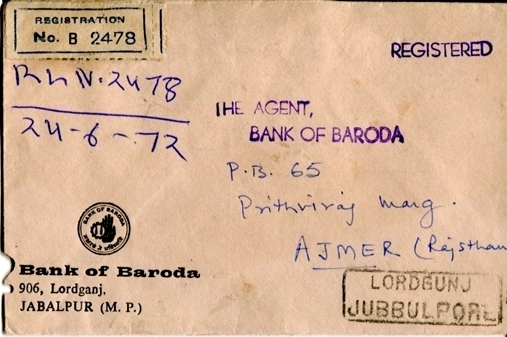 REGISTRATION
No. B 2478
REGISTERED
RLN.2478
24-6-72
THE AGENT,
BANK OF BARODA
P.B. 65
Prithviraj Marg.
AJMER (Rajsthan
BANK OF BARODA
Bank of Baroda
906, Lordganj,
JABALPUR (M. P.)
LORDGUNJ
JUBBULPORE